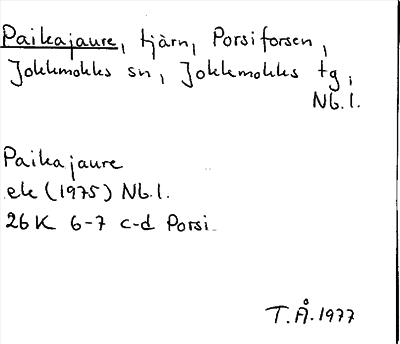 Paikajaure, tjärn, Porsiforsen,
Jokkmokks sn, Jokkmokks tg,
Nb.l.
Paikajaure
ek (1975) Nb.l.
26K 6-7 c-d Porsi.
T.Å. 1977